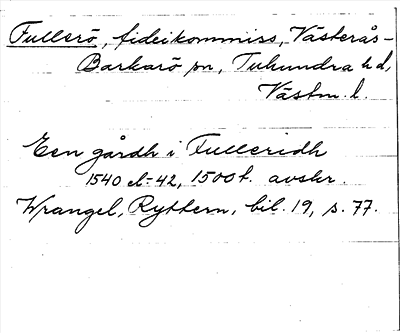 Fullerö, fideikommiss, Västerås-
Barkarö sn, Tuhundra hd,
Västm. l.
Een gårdh i Fulleridh
1540 el-42, 1500t. avskr.
Wrangel, Ryttern, bil. 19, s. 77.